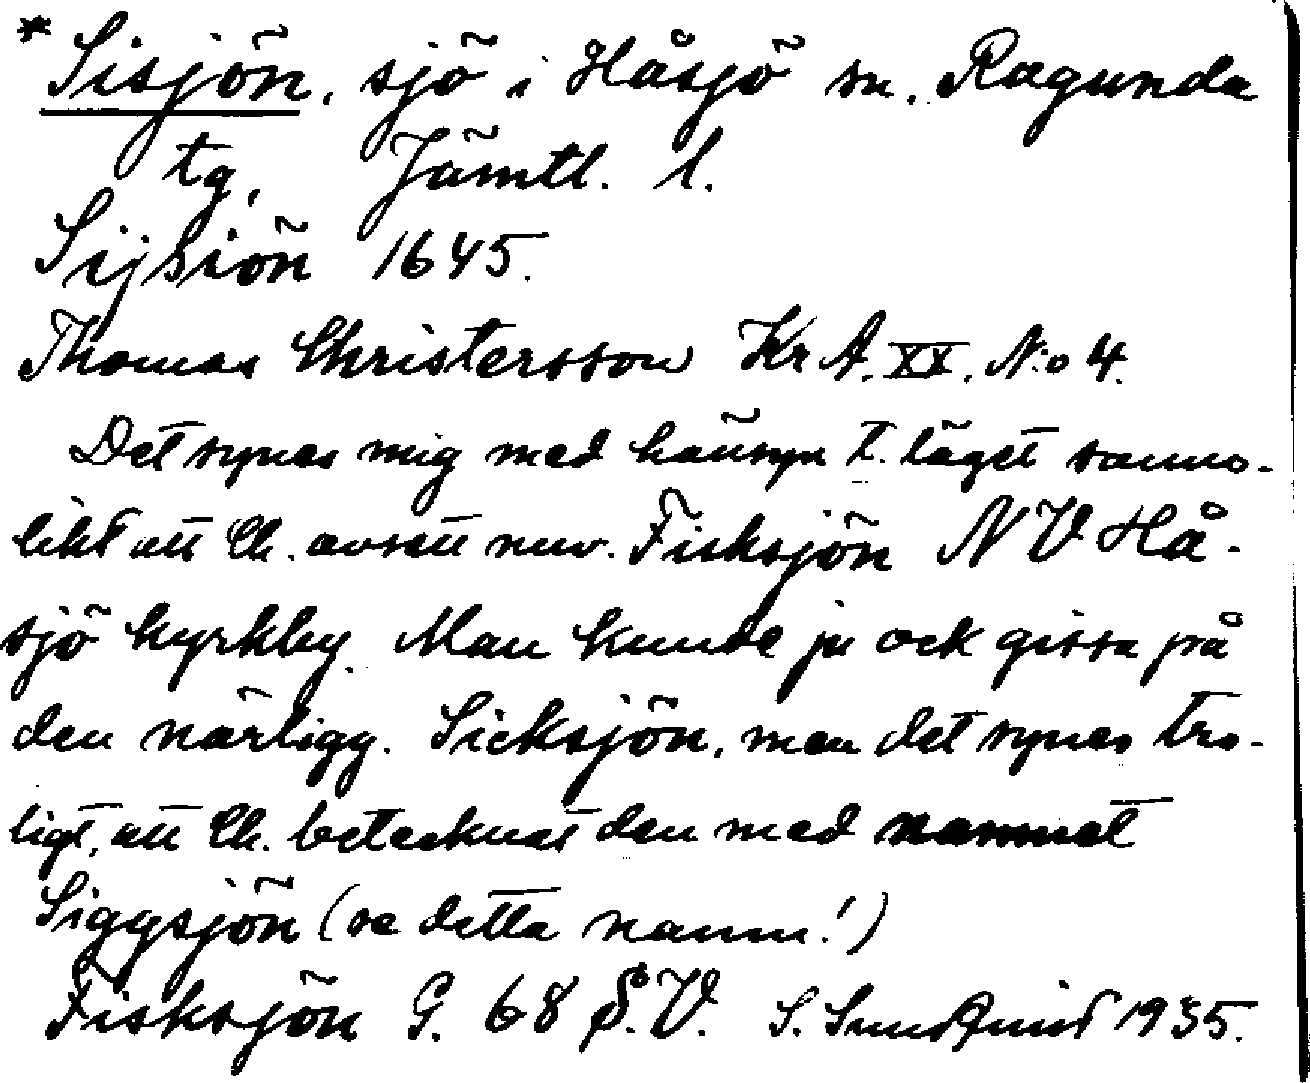 *Sisjön, sjö i Håsjö sn. Ragunda
tg, Jämtl. l.
Sijsiön 1645.
Thomas Christersson KrA. XX. N:o 4.
Det synes mig med hänsyn t. läget sanno-
likt att Ch. avsett nuv. Fisksjön NV Hå-
sjö kyrkby. Man kunde ju ock gissa på
den närligg. Sicksjön, men det synes tro-
ligt, att Ch. betecknat den med namnet
Siggsjön (se detta namn!)
Fisksjön G. 68 S.V. S. Sundquist 1935.